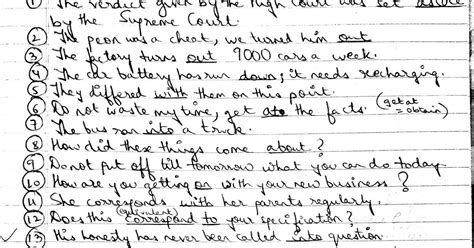 ① The verdict given by the High Court was set aside
by the Supreme Court.
② The peon was a cheat, we turned him out
③ The factory turns out 7000 cars a week.
④ The car battery has run down; it needs recharging.
⑤ They differed with them on this point.
⑥ Do not waste my time, get at the facts. (get at = obtain)
⑦ The bus ran into a truck.
⑧ How did these things come about?
⑨ Do not put off till tomorrow what you can do today.
⑩ How are you getting on with your new business?
⑪ She corresponds with her parents regularly.
(equivalent)
⑫ Does this correspond to your specification?
⑬ His honesty has never been called into question.